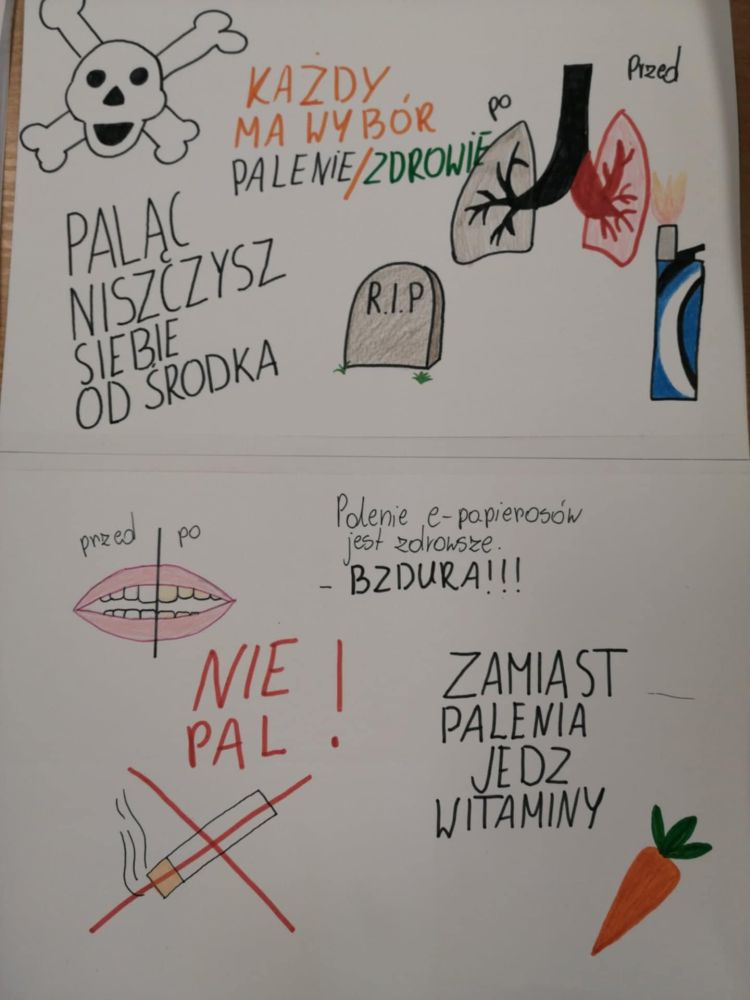 KAŻDY
MA WYBÓR
PALENIE/ZDROWIE
po
Przed
PALĄC
NISZCZYSZ
SIEBIE
OD ŚRODKA
R.I.P
przed po
Palenie e-papierosów
jest zdrowsze.
- BZDURA!!!
NIE
PAL !
ZAMIAST
PALENIA
JEDZ
WITAMINY